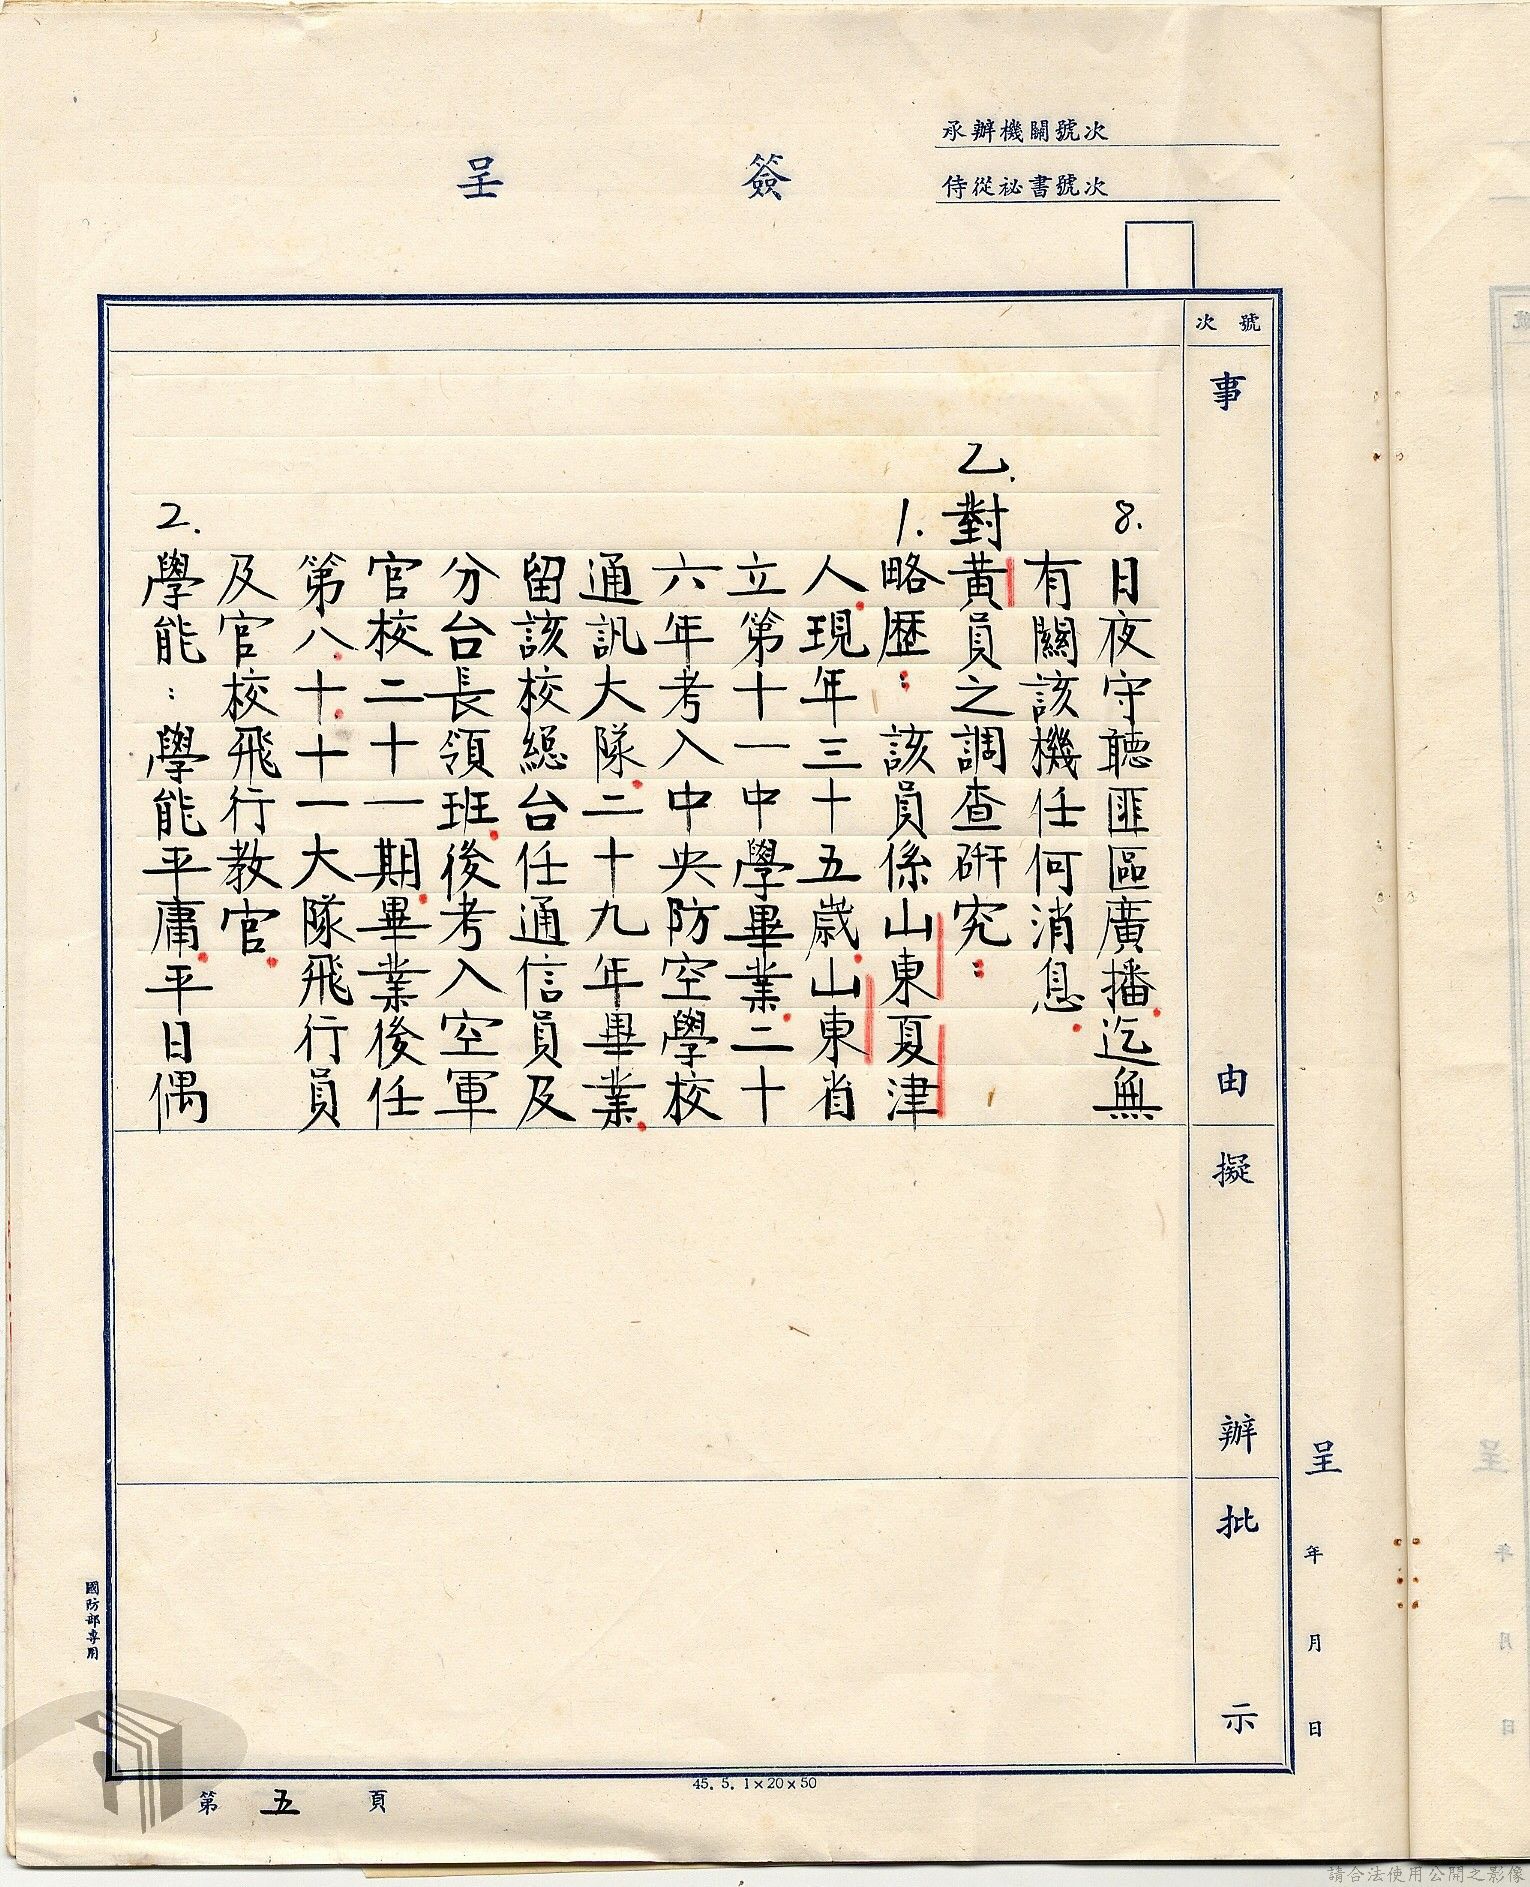 承辦機關號次
侍從祕書號次
簽呈
號次
事由
8.日夜守聽匪區廣播.迄無
有關該機任何消息.
乙.對黃員之調查研究:
1.略歷:該員係山東夏津
人.現年三十五歲.山東省
立第十一中學畢業.二十
六年考入中央防空學校
通訊大隊.二十九年畢業.
留該校總台任通信員及
分台長領班.後考入空軍
官校二十一期.畢業後任
第八.十.十一大隊飛行員
及官校飛行教官.
2.學能:學能平庸.平日偶
擬辦
批示
呈 年 月 日
國防部專用
45. 5. 1×20×50
第五頁
請合法使用公開之影像